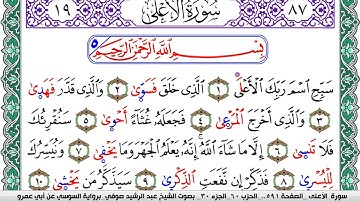 ١٩ سُورَةُ الْأَعْلَىٰ ٨٧
بِسْمِ اللَّهِ الرَّحْمَٰنِ الرَّحِيمِ
سَبِّحِ اسْمَ رَبِّكَ الْأَعْلَى ١ الَّذِي خَلَقَ فَسَوَّىٰ ٢ وَالَّذِي قَدَّرَ فَهَدَىٰ
٣ وَالَّذِي أَخْرَجَ الْمَرْعَىٰ ٤ فَجَعَلَهُ غُثَاءً أَحْوَىٰ ٥ سَنُقْرِئُكَ
فَلَا تَنسَىٰ ٦ إِلَّا مَا شَاءَ اللَّهُ إِنَّهُ يَعْلَمُ الْجَهْرَ وَمَا يَخْفَىٰ ٧ وَنُيَسِّرُكَ
لِلْيُسْرَىٰ ٨ فَذَكِّرْ إِن نَّفَعَتِ الذِّكْرَىٰ ٩ سَيَذَّكَّرُ مَن يَخْشَىٰ ١٠
سورة الأعلى . الصفحة ٥٩١ . الحزب ٦٠ . الجزء ٣٠ . بصوت الشيخ عبد الرشيد صوفي . برواية السوسي عن أبي عمرو